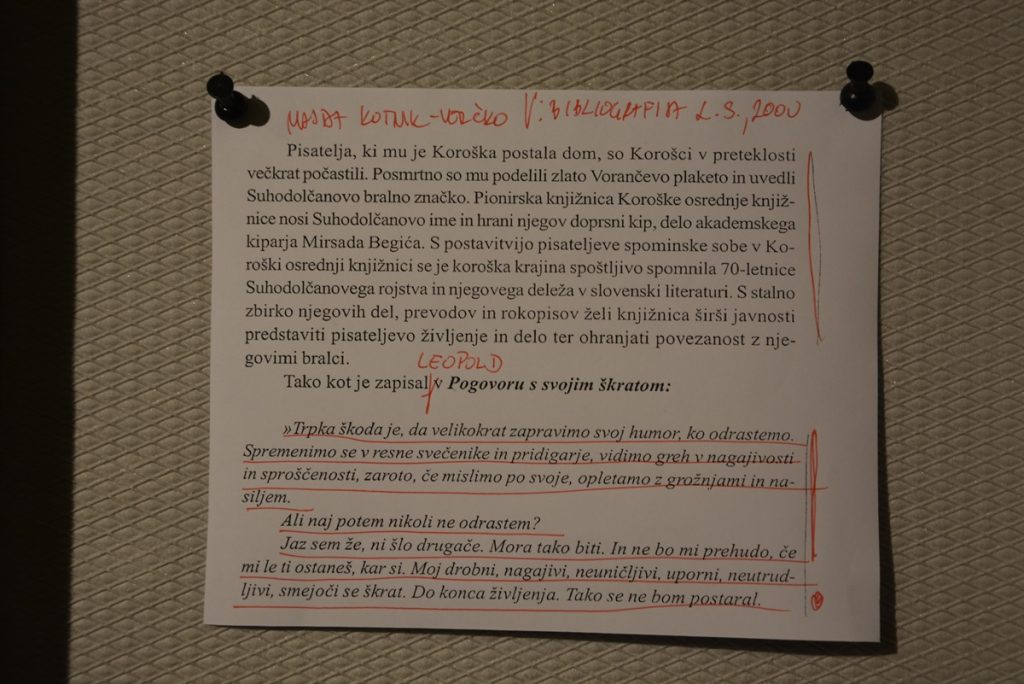 MAJDA KOTNIK-VERČKO V: BIBLIOGRAFIJA L.S., 2000
Pisatelja, ki mu je Koroška postala dom, so Korošci v preteklosti
večkrat počastili. Posmrtno so mu podelili zlato Vorančevo plaketo in uvedli
Suhodolčanovo bralno značko. Pionirska knjižnica Koroške osrednje knjiž-
nice nosi Suhodolčanovo ime in hrani njegov doprsni kip, delo akademskega
kiparja Mirsada Begića. S postavitvijo pisateljeve spominske sobe v Ko-
roški osrednji knjižnici se je koroška krajina spoštljivo spomnila 70-letnice
Suhodolčanovega rojstva in njegovega deleža v slovenski literaturi. S stalno
zbirko njegovih del, prevodov in rokopisov želi knjižnica širši javnosti
predstaviti pisateljevo življenje in delo ter ohranjati povezanost z nje-
govimi bralci.
LEOPOLD
Tako kot je zapisal v Pogovoru s svojim škratom:
»Trpka škoda je, da velikokrat zapravimo svoj humor, ko odrastemo.
Spremenimo se v resne svečenike in pridigarje, vidimo greh v nagajivosti
in sproščenosti, zaroto, če mislimo po svoje, opletamo z grožnjami in na-
siljem.
Ali naj potem nikoli ne odrastem?
Jaz sem že, ni šlo drugače. Mora tako biti. In ne bo mi prehudo, če
mi le ti ostaneš, kar si. Moj drobni, nagajivi, neuničljivi, uporni, neutrud-
ljivi, smejoči se škrat. Do konca življenja. Tako se ne bom postaral.